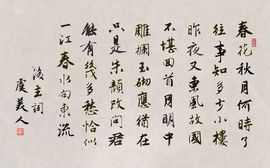 春花秋月何時了
往事知多少小樓
昨夜又東風故國
不堪回首月明中
雕欄玉砌應猶在
只是朱顏改問君
能有幾多愁恰似
一江春水向東流
後主詞
虞美人